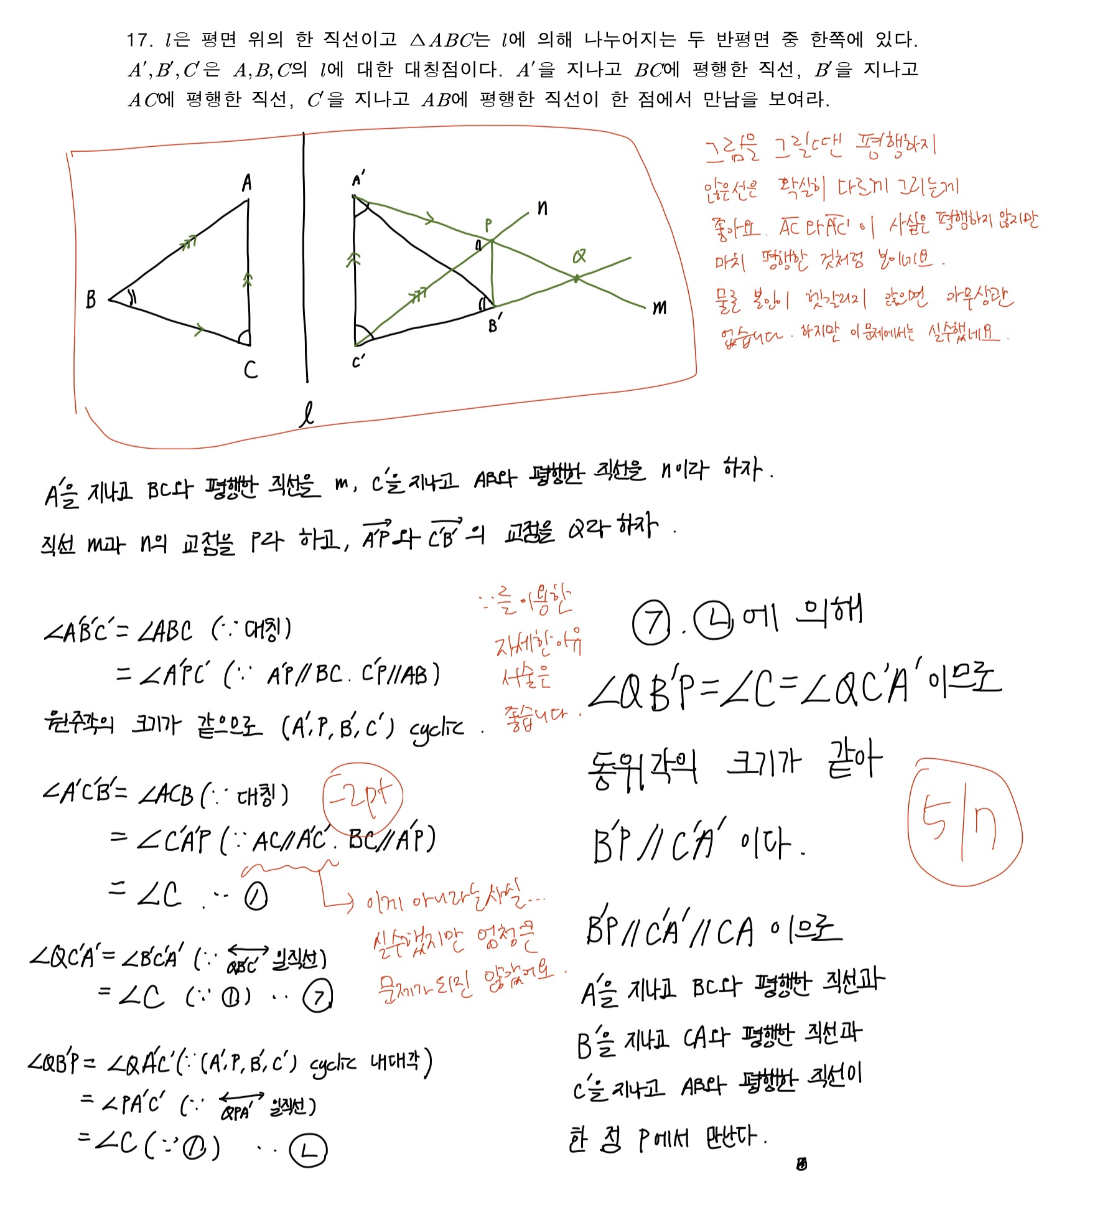 17. l은 평면 위의 한 직선이고 △ABC는 l에 의해 나누어지는 두 반평면 중 한쪽에 있다.
A′,B′,C′은 A,B,C의 l에 대한 대칭점이다. A′을 지나고 BC에 평행한 직선, B′을 지나고
AC에 평행한 직선, C′을 지나고 AB에 평행한 직선이 한 점에서 만남을 보여라.
그림을 그릴땐 평행하지
않은선은 확실히 다르게 그리는게
좋아요. AC와 A′C′이 사실은 평행하지 않지만
마치 평행한 것처럼 보이네요.
물론 본인이 헷갈리지 않으면 아무상관
없습니다. 하지만 이 문제에서는 실수했네요.
A
B
C
l
A′
B′
C′
P
Q
n
m
A′을 지나고 BC와 평행한 직선을 m, C′을 지나고 AB와 평행한 직선을 n이라 하자.
직선 m과 n의 교점을 P라 하고, A′P와 C′B′의 교점을 Q라 하자.
∠A′B′C′ = ∠ABC (∵ 대칭)
= ∠A′PC′ (∵ A′P//BC. C′P//AB)
원주각의 크기가 같으므로 (A′, P, B′, C′) cyclic.
∵를 이용한
자세한 이유
서술은
좋습니다.
∠A′C′B′ = ∠ACB (∵ 대칭)
-2pt
= ∠C′A′P (∵ AC//A′C′. BC//A′P)
= ∠C ‥ ①
이게 아니라는 사실...
실수했지만 엄청큰
문제가 되진 않았어요.
∠QC′A′ = ∠B′C′A′ (∵ QB′C′ 일직선)
= ∠C (∵ ①) ‥ ㉠
∠QB′P = ∠QA′C′ (∵ (A′, P, B′, C′) cyclic 내대각)
= ∠PA′C′ (∵ QPA′ 일직선)
= ∠C (∵ ①) ‥ ㉡
㉠. ㉡에 의해
∠QB′P = ∠C = ∠QC′A′ 이므로
동위각의 크기가 같아
B′P // C′A′ 이다.
5/7
B′P // C′A′ // CA 이므로
A′을 지나고 BC와 평행한 직선과
B′을 지나고 CA와 평행한 직선과
C′을 지나고 AB와 평행한 직선이
한 점 P에서 만난다.